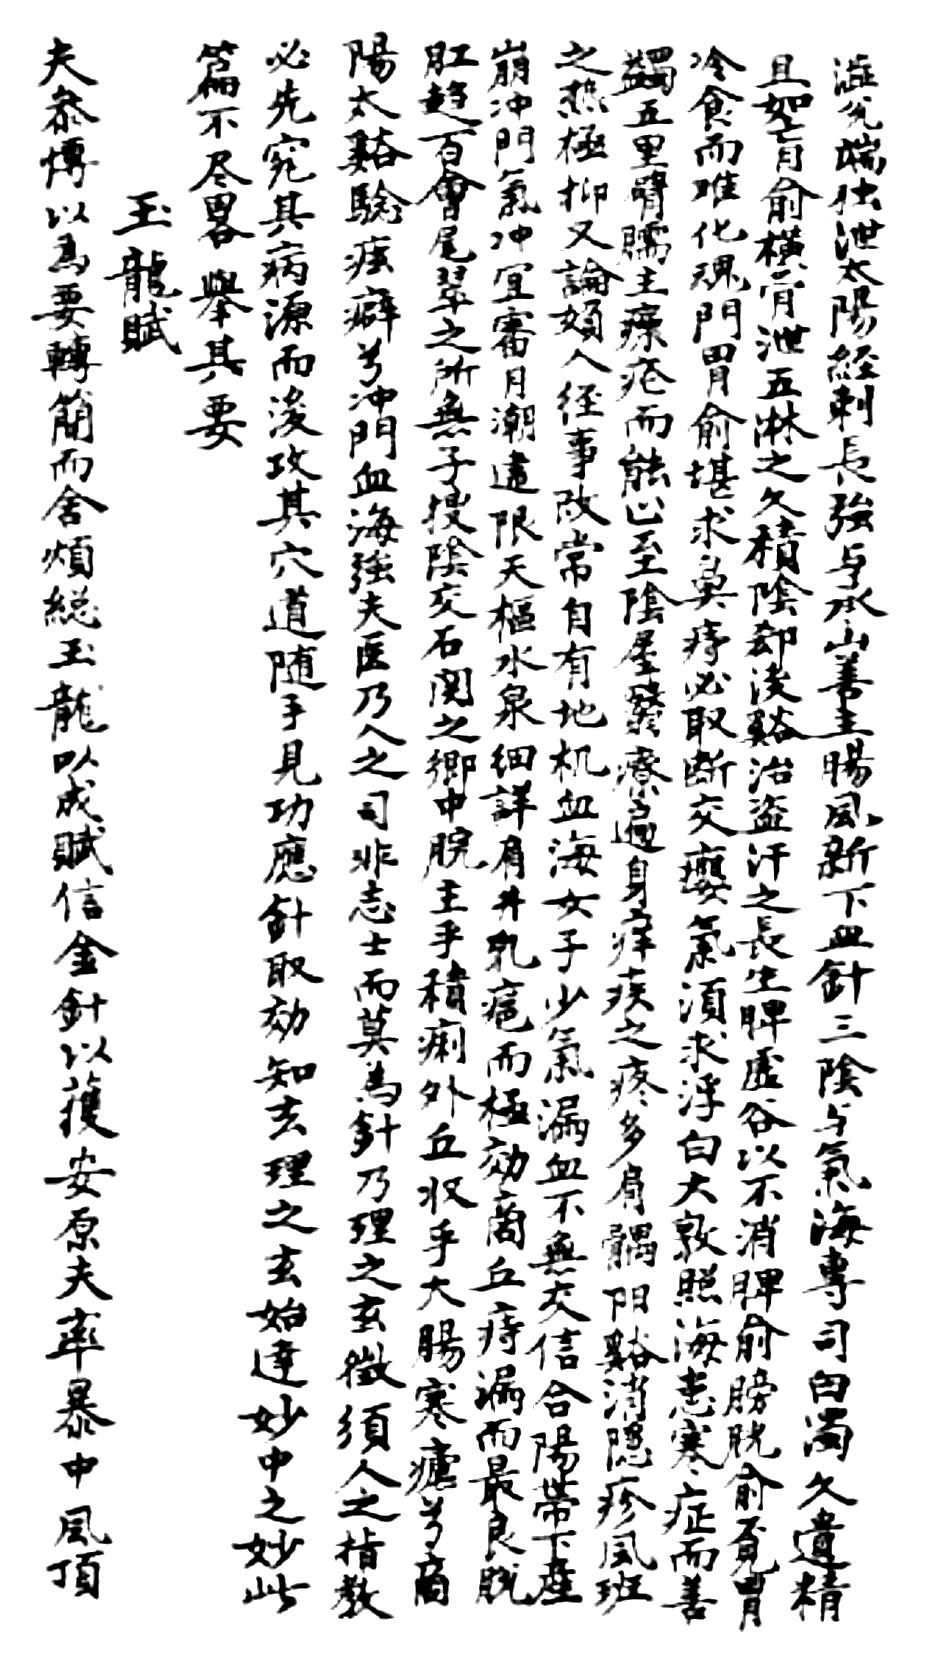 澁兌端独泄太陽経刺長強与承山善主腸風新下血針三陰与氣海專司白濁久遺精
且如肓俞橫骨泄五淋之久積陰郄後谿治盗汗之長生脾虚谷以不消脾俞膀胱俞覔胃
冷食而难化魂門胃俞堪求鼻痔必取断交癭氣湏求浮白大敦照海患寒症而善
蠲五里臂臑主瘰疮而能止至陰屋翳療遍身痒疾之疼多肩髃阳谿消隠疹風班
之热極抑又論婦人経事改常自有地机血海女子少氣漏血不無交信合陽帶下産
崩冲門氣冲宜審月潮違限天樞水泉細詳肩井乳痈而極効商丘痔漏而最良脱
肛趋百會尾翠之所無子搜陰交石関之鄉中脘主乎積痢外丘収乎大腸寒瘧兮商
陽太谿驗痃癖兮冲門血海強夫医乃人之司非志士而莫為針乃理之玄微須人之指教
必先究其病源而後攻其穴道随手見功應針取効知玄理之玄始達妙中之妙此
篇不尽畧舉其要
玉龍賦
夫叅慱以為要轉簡而舍煩緫玉龍以成賦信金針以獲安原夫卒暴中風頂